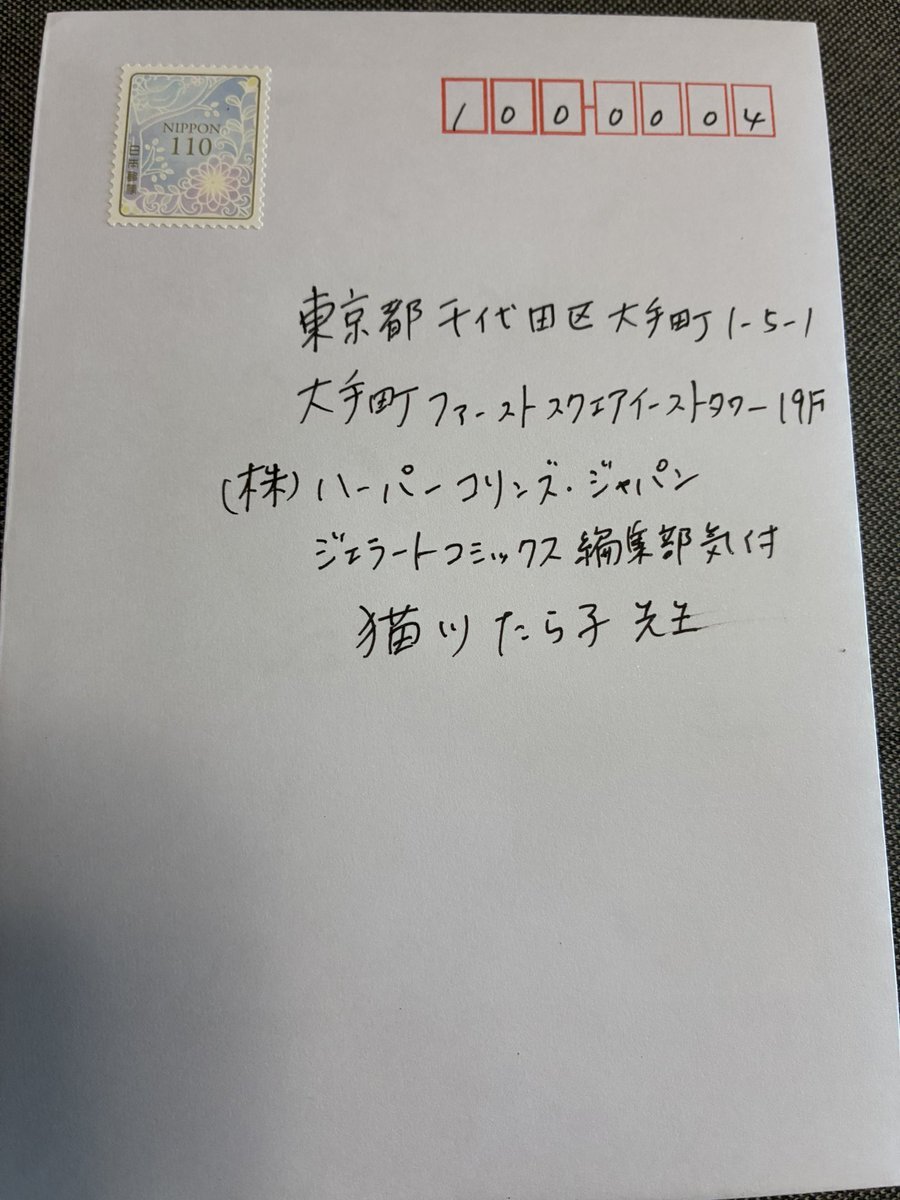 NIPPON
110
日本郵便
1000004
東京都千代田区大手町1-5-1
大手町ファーストスクエアイーストタワー19F
(株)ハーパーコリンズ・ジャパン
ジェラートコミックス編集部気付
猫川たら子先生